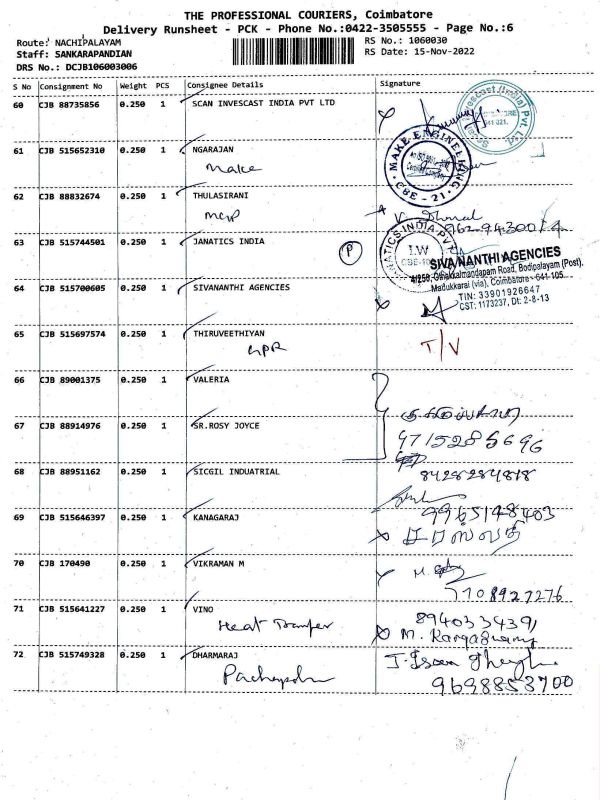 THE PROFESSIONAL COURIERS, Coimbatore
Delivery Runsheet - PCK - Phone No.:0422-3505555 - Page No.:6
Route: NACHIPALAYAM
RS No.: 1060030
Staff: SANKARAPANDIAN
RS Date: 15-Nov-2022
DRS No.: DCJB106003006
S No Consignment No Weight PCS Consignee Details Signature
60 CJB 88735856 0.250 1 SCAN INVESCAST INDIA PVT LTD
61 CJB 515652310 0.250 1 NGARAJAN
Make
MAKE ENGINEERING
CBE - 21.
62 CJB 88832674 0.250 1 THULASIRANI
63 CJB 515744501 0.250 1 JANATICS INDIA
P
I.W
SIVA NANTHI AGENCIES
4/250, Othakkalmandapam Road, Bodipalayam (Post),
Madukkarai (via), Coimbatore - 641-105.
TIN: 33901926647
CST: 1173237, Dt: 2-8-13
64 CJB 515700605 0.250 1 SIVANANTHI AGENCIES
65 CJB 515697574 0.250 1 THIRUVEETHIYAN
T/V
66 CJB 89001375 0.250 1 VALERIA
67 CJB 88914976 0.250 1 SR.ROSY JOYCE
9715285696
68 CJB 88951162 0.250 1 SICGIL INDUATRIAL
8428284818
69 CJB 515646397 0.250 1 KANAGARAJ
9965148403
70 CJB 170490 0.250 1 VIKRAMAN M
7708927276
71 CJB 515641227 0.250 1 VINO
Heat Transfer
8940334391
72 CJB 515749328 0.250 1 DHARMARAJ
9698853700